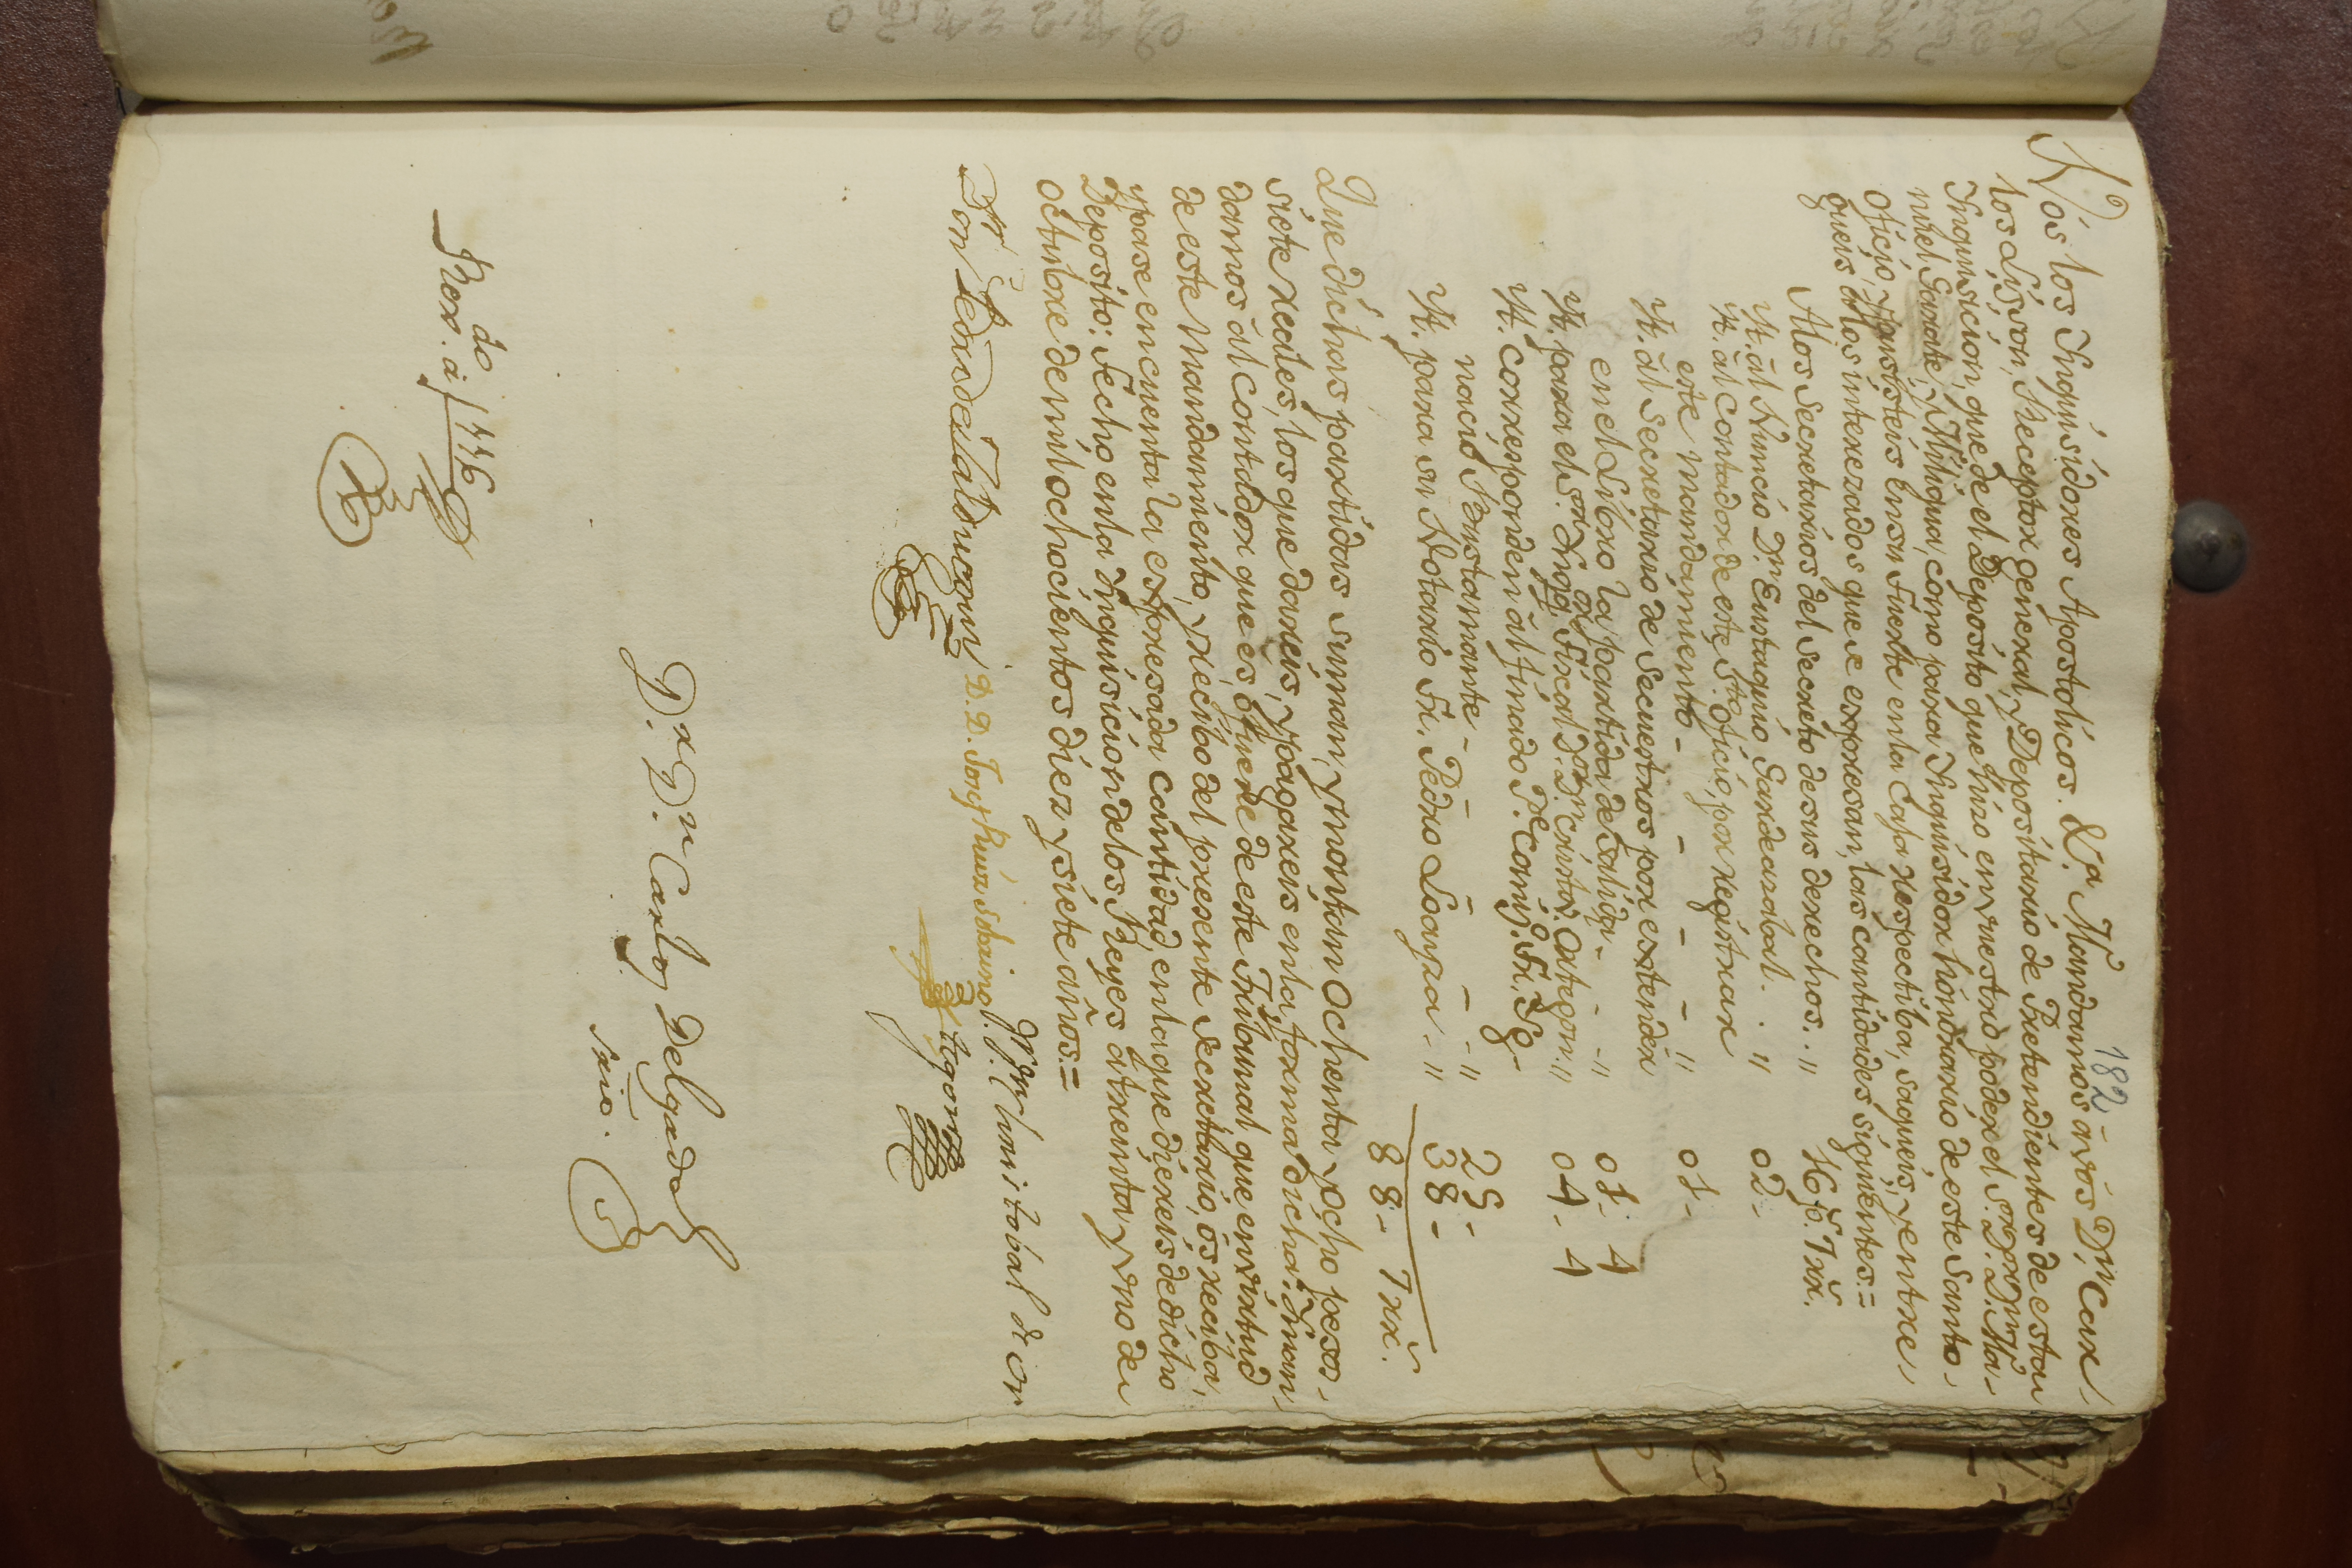 182
Nos los Inquisidores Apostolicos. &.ª Mandamos à vos D.n Car-
los Lison, Receptor general, y Depositario de Pretendientes de esta
Inquisicion, que de el Deposito que hizo en vuestro poder el S.or D.r D. Ma-
nuel Garate, y Thiraua, como para Inquisidor honorario de este Santo
Oficio, y pusisteis en su Fuerte en la Caja respectiba, saqueis, y entre-
gueis à los interezados que se expresan, las cantidades siguientes.=
Alos Secretarios del Secreto de sus derechos. " 16 p.s 7 rr.s
Yt. àl Nuncio D.n Eustaquio Gardeazabal. . " 02 -
Yt. àl Contador de este S.to Oficio, por registrar
este mandamiento - - - - " 01 -
Yt. àl Secretario de Secuestros por extender
en el Libro la partida de Salida - - - " 01 - 4
Yt. para el S.or Inq.or Fiscal, D.or D.n Cristov. Ortegon. " 04 - 4
Yt. corresponden àl finado P.e Com.o Fr. Ig-
nacio Bustamante - - - - - " 25 -
Yt. para su Notario Fr. Pedro Loayza - " 38 -
88 - 7 rr.s
Que dichas partidas suman, y montan Ochenta y ocho pesos,
siete reales, los que dareis, y pagareis en la forma dicha: Y man-
damos àl Contador que es ò fuere de este Tribunal, que en virtud
de este Mandamiento, y recibo del presente Secretario, os reciba,
y pase en cuenta la expresada cantidad, en lo que diereis de dicho
Deposito: Fecho en la Inquisicion de los Reyes à treinta y uno de
Octubre de mil ochocientos diez y siete años.=
D.r D. Pedro de Zalduegui D. D. Jose Ruiz Sobrino D.r D. Christobal de Or-
tegon
D.r D.n Carlos Delgado
srio.
Rexdo. à f 116